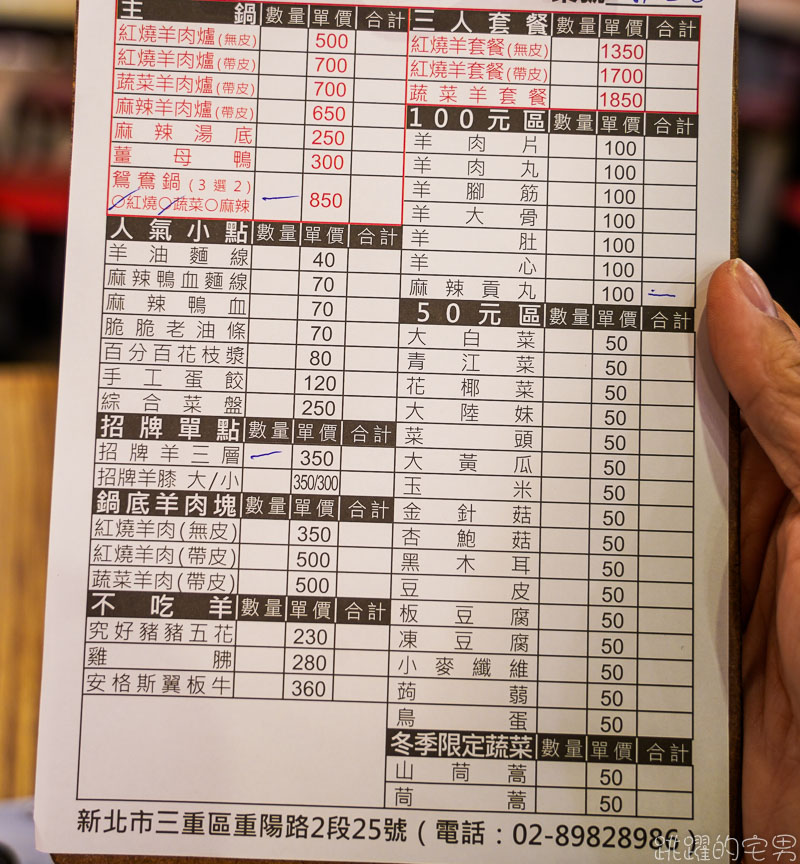 主鍋 數量 單價 合計
紅燒羊肉爐(無皮) 500
紅燒羊肉爐(帶皮) 700
蔬菜羊肉爐(帶皮) 700
麻辣羊肉爐(帶皮) 650
麻辣湯底 250
薑母鴨 300
鴛鴦鍋(3選2) 850
○紅燒○蔬菜○麻辣
人氣小點 數量 單價 合計
羊油麵線 40
麻辣鴨血麵線 70
麻辣鴨血 70
脆脆老油條 70
百分百花枝漿 80
手工蛋餃 120
綜合菜盤 250
招牌單點 數量 單價 合計
招牌羊三層 350
招牌羊膝 大/小 350/300
鍋底羊肉塊 數量 單價 合計
紅燒羊肉(無皮) 350
紅燒羊肉(帶皮) 500
蔬菜羊肉(帶皮) 500
不吃羊 數量 單價 合計
究好豬豬五花 230
雞胇 280
安格斯翼板牛 360
三人套餐 數量 單價 合計
紅燒羊套餐(無皮) 1350
紅燒羊套餐(帶皮) 1700
蔬菜羊套餐 1850
100元區 數量 單價 合計
羊肉片 100
羊肉丸 100
羊腳筋 100
羊大骨 100
羊肚 100
羊心 100
麻辣貢丸 100
50元區 數量 單價 合計
大白菜 50
青江菜 50
花椰菜 50
大陸妹 50
菜頭 50
大黃瓜 50
玉米 50
金針菇 50
杏鮑菇 50
黑木耳 50
豆皮 50
板豆腐 50
凍豆腐 50
小麥纖維 50
蒟蒻 50
鳥蛋 50
冬季限定蔬菜 數量 單價 合計
山茼蒿 50
茼蒿 50
新北市三重區重陽路2段25號(電話:02-89828986)
跳躍的宅男